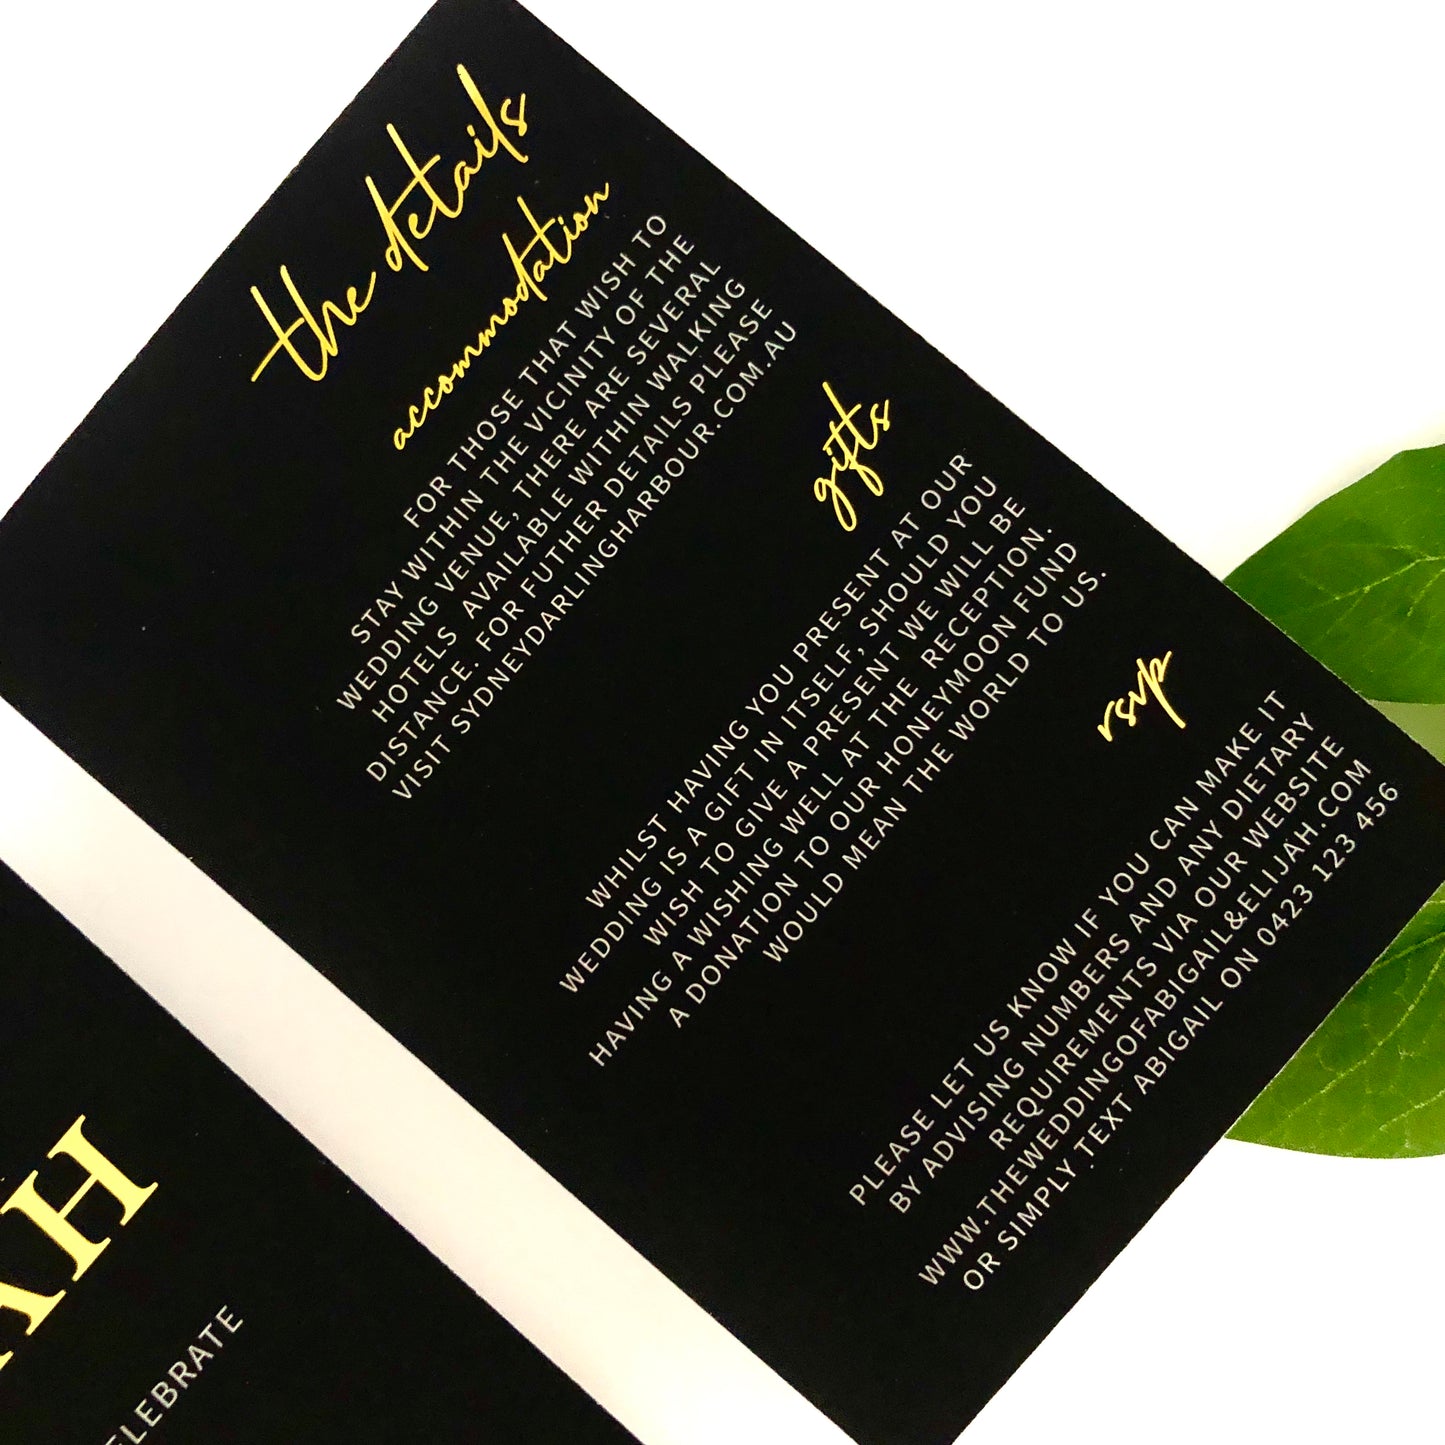 the details
accommodation
FOR THOSE THAT WISH TO
STAY WITHIN THE VICINITY OF THE
WEDDING VENUE, THERE ARE SEVERAL
HOTELS AVAILABLE WITHIN WALKING
DISTANCE. FOR FUTHER DETAILS PLEASE
VISIT SYDNEYDARLINGHARBOUR.COM.AU
gifts
WHILST HAVING YOU PRESENT AT OUR
WEDDING IS A GIFT IN ITSELF, SHOULD YOU
WISH TO GIVE A PRESENT WE WILL BE
HAVING A WISHING WELL AT THE RECEPTION.
A DONATION TO OUR HONEYMOON FUND
WOULD MEAN THE WORLD TO US.
rsvp
PLEASE LET US KNOW IF YOU CAN MAKE IT
BY ADVISING NUMBERS AND ANY DIETARY
REQUIREMENTS VIA OUR WEBSITE
WWW.THEWEDDINGOFABIGAIL&ELIJAH.COM
OR SIMPLY TEXT ABIGAIL ON 0423 123 456
AH
ELEBRATE